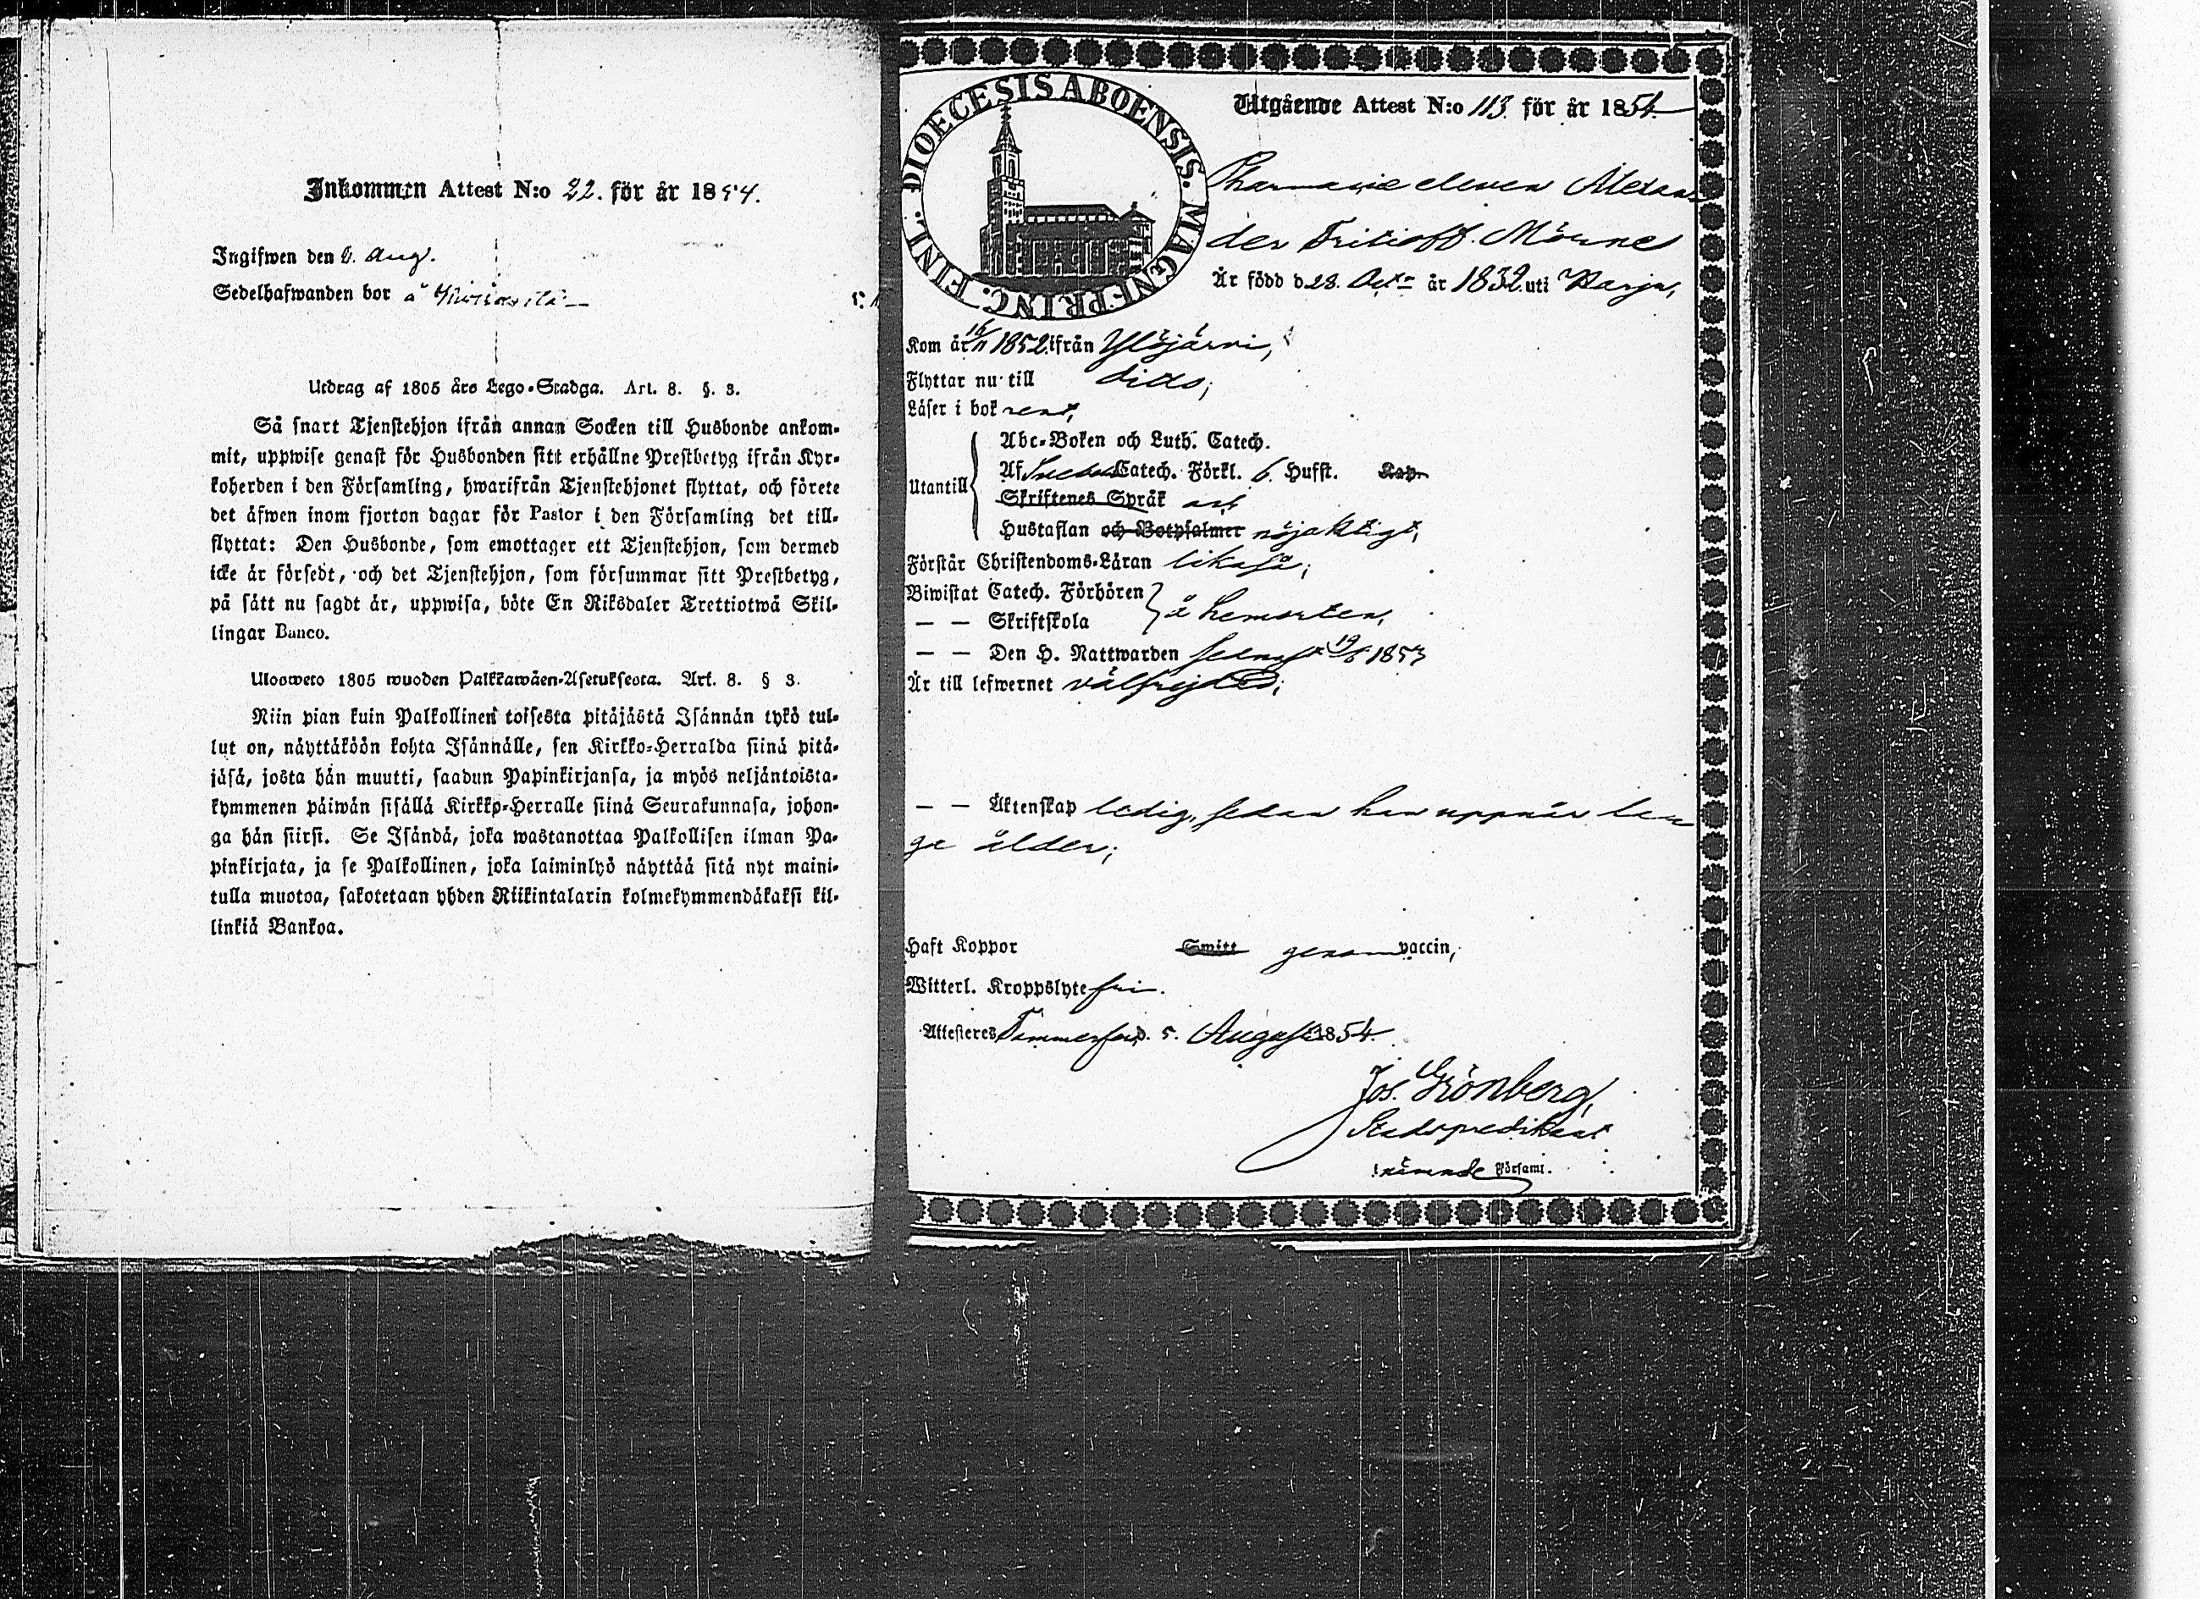 Inkommen Attest N:o 22. för år 1854.
Ingifwen den 6. Aug.
Sedelhafwanden bor å
Utdrag af 1805 års Lego-Stadga. Art. 8. §. 3.
Så snart Tjenstehjon ifrån annan Socken till Husbonde ankom-
mit, uppwise genast för Husbonden sitt erhållne Prestbetyg ifrån Kyr-
koherden i den Församling, hwarifrån Tjenstehjonet flyttat, och förete
det åfwen inom fjorton dagar för Pastor i den Församling det till-
flyttat: Den Husbonde, som emottager ett Tjenstehjon, som dermed
icke är försedt, och det Tjenstehjon, som försummar sitt Prestbetyg,
på sätt nu sagdt är, uppwisa, böte En Riksdaler Trettiotwå Skil-
lingar Banco.
Ulosweto 1805 wuoden Palkkawäen-Asetuksesta. Art. 8. § 3.
Niin pian kuin Palkollinen toisesta pitäjästä Isännän tykö tul-
lut on, näyttäköön kohta Isännälle, sen Kirkko-Herralda siinä pitä-
jäsä, josta hän muutti, saadun Papinkirjansa, ja myös neljäntoista-
kymmenen päiwän sisällä Kirkko-Herralle siinä Seurakunnasa, johon-
ga hän siirsi. Se Isändä, joka wastanottaa Palkollisen ilman Pa-
pinkirjata, ja se Palkollinen, joka laiminlyö näyttää sitä nyt maini-
tulla muotoa, sakotetaan yhden Riikintalarin kolmekymmendäkaksi kil-
linkiä Bankoa.
DIOECESIS ABOENSIS. MAGNI PRINC. FINL.
Utgående Attest N:o 113. för år 1854.
Pharmacie eleven Alexan
der Fritioff Mörne
Är född d. 28. Oct. år 1832. uti Karja,
Kom år 16/11 1852. ifrån Ylöjärvi,
Flyttar nu till dito;
Läser i bok rent,
Utantill
Abc-Boken och Luth. Catech.
Af Svebel. Catech. Förkl. 6. Hufst. Kap.
Skriftenes Språk och
Hustaflan och Botpsalmer nöjaktigt,
Förstår Christendoms-Läran likaså;
Biwistat Catech. Förhören
— — Skriftskola å hemorten,
— — Den H. Nattwarden senast 19/6 1853
Är till lefwernet välfrejdad;
— — Äktenskap ledig, sedan han uppnår lau
ga ålder;
Haft Koppor Smitt genom vaccin,
Witterl. Kroppslyte fri.
Attesteres Tammerfors d. 5. August 1854.
Jos. Grönberg,
Stadspredikant
i nämnde Församl.